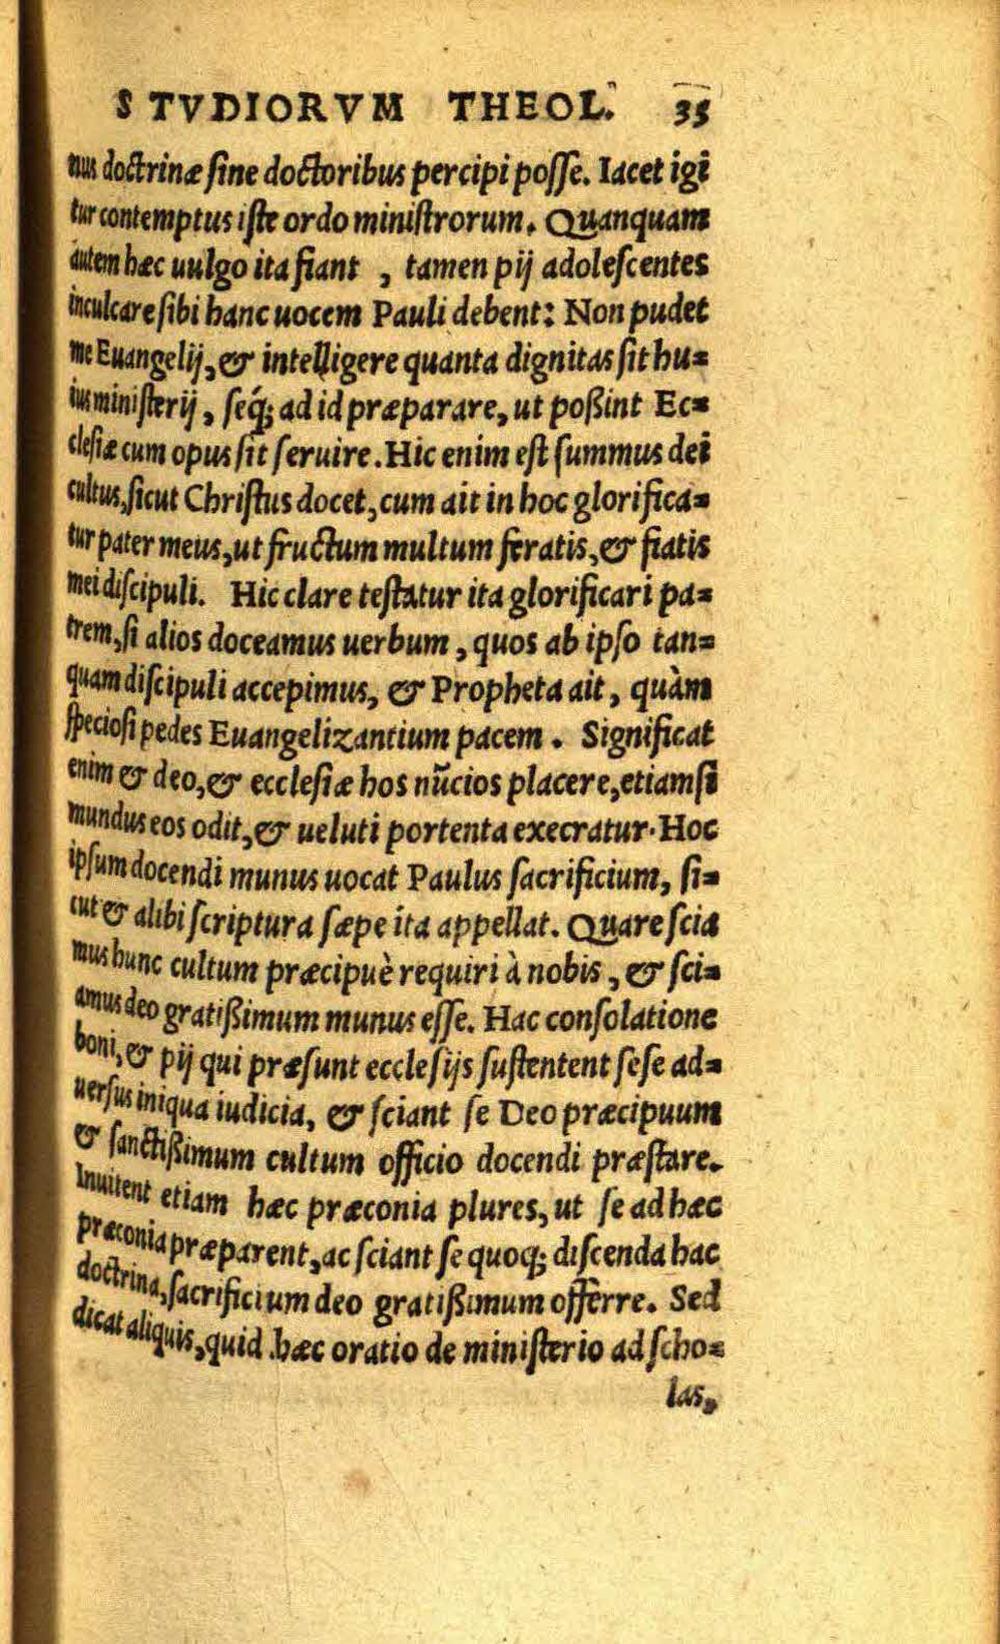 STVDIORVM THEOL. 35
nus doctrinæ sine doctoribus percipi posse. Iacet igi
tur contemptus iste ordo ministrorum. Quanquam
autem hæc uulgo ita fiant , tamen pij adolescentes
inculcare sibi hanc uocem Pauli debent: Non pudet
me Euangelij, & intelligere quanta dignitas sit hu=
ius ministerij, seq́; ad id præparare, ut poßint Ec=
clesiæ cum opus sit seruire. Hic enim est summus dei
cultus, sicut Christus docet, cum ait in hoc glorifica=
tur pater meus, ut fructum multum feratis, & fiatis
mei discipuli. Hic clare testatur ita glorificari pa=
trem, si alios doceamus uerbum, quos ab ipso tan=
quam discipuli accepimus, & Propheta ait, quàm
speciosi pedes Euangelizantium pacem. Significat
enim & deo, & ecclesiæ hos nũcios placere, etiamsi
mundus eos odit, & ueluti portenta execratur. Hoc
ipsum docendi munus uocat Paulus sacrificium, si=
cut & alibi scriptura sæpe ita appellat. Quare scia
mus hunc cultum præcipuè requiri à nobis, & sci=
amus deo gratißimum munus esse. Hac consolatione
boni, & pij qui præsunt ecclesijs sustentent sese ad=
uersus iniqua iudicia, & sciant se Deo præcipuum
& sanctißimum cultum officio docendi præstare.
Inuitent etiam hæc præconia plures, ut se ad hæc
præconia præparent, ac sciant se quoq; discenda hac
doctrina, sacrificium deo gratißimum offerre. Sed
dicat aliquis, quid hæc oratio de ministerio ad scho=
las,